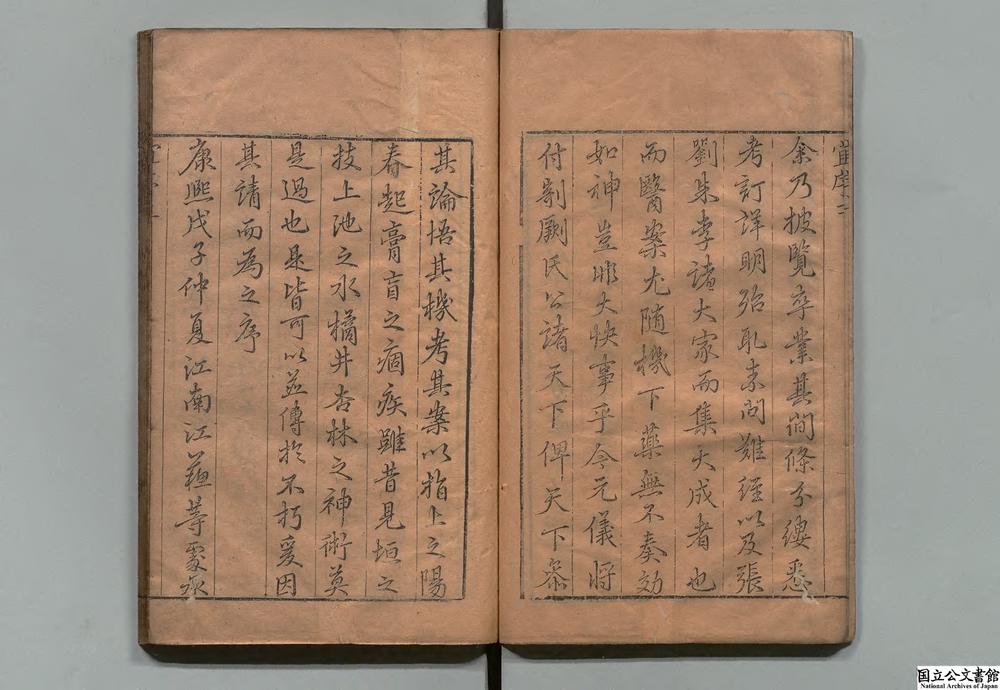 余乃披覽卒業其間條分縷悉
考訂詳明殆取素問難經以及張
劉朱李諸大家而集大成者也
而醫案尤随機下藥無不奏効
如神豈非大快事乎今元儀將
付剞劂氏公諸天下俾天下叅
其論悟其機考其案以指上之陽
春起膏盲之痼疾雖昔見垣之
技上池之水橘井杏林之神術莫
是過也是皆可以並傳於不朽爰因
其請而為之序
康熙戊子仲夏江南江蘓等處承
国立公文書館
National Archives of Japan